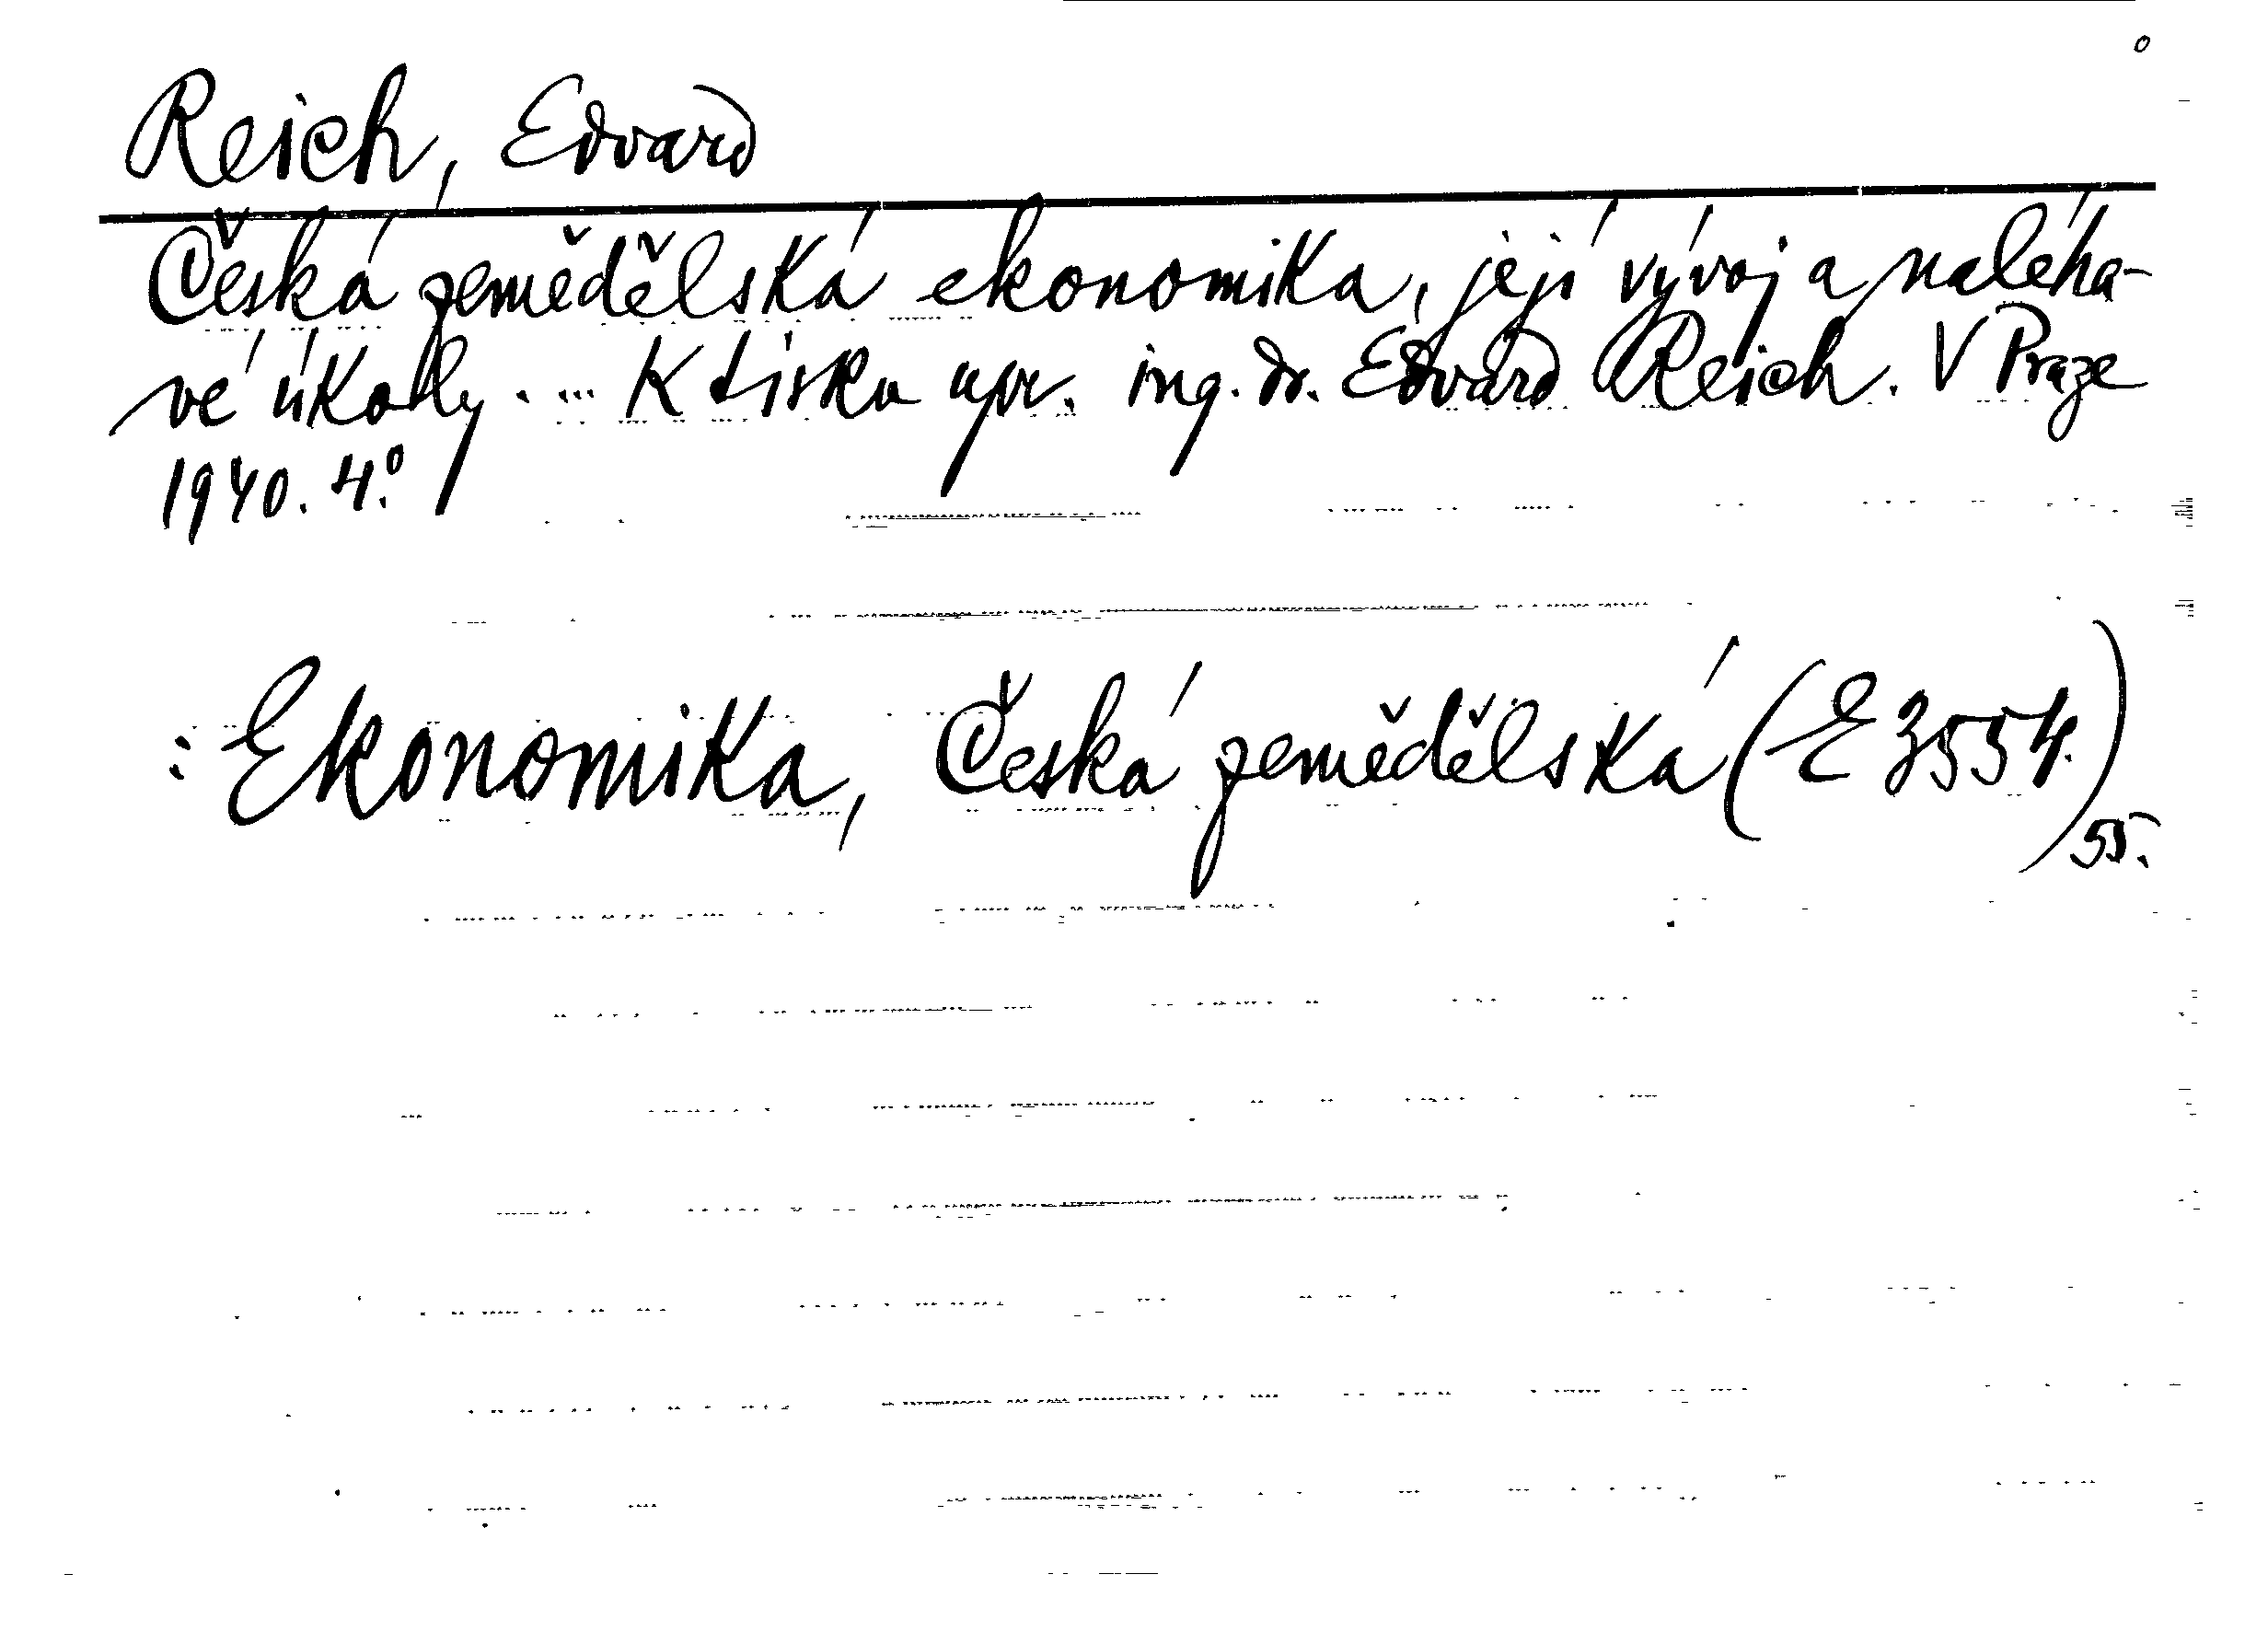 Reich, Edvard
Česká zemědělská ekonomika, její vývoj a naléha-
vé úkoly. ... K tisku upr. ing. dr. Edvard Reich. V Praze
1940. 4.°
: Ekonomika, Česká zemědělská (E 3554.)
55.